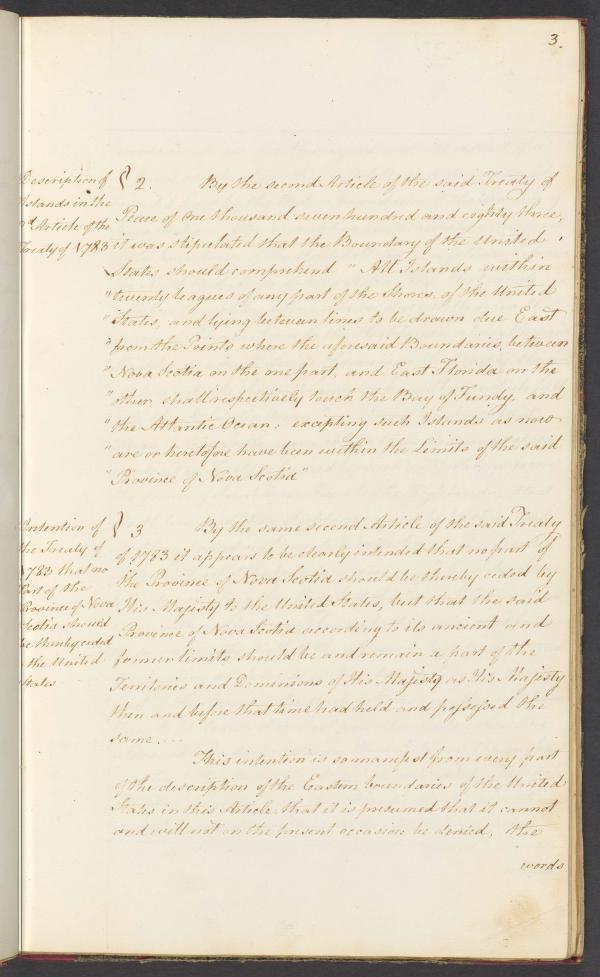 3.
Description of
Islands in the
2d Article of the
Treaty of 1783
2. By the second Article of the said Treaty of
Peace of One thousand seven hundred and eighty three,
it was stipulated that the Boundary of the United
States should comprehend "All Islands within
"twenty leagues of any part of the Shores, of the United
"States, and lying between lines to be drawn due East
"from the Points where the aforesaid Boundaries, between
"Nova Scotia on the one part, and East Florida on the
"other shall respectively touch the Bay of Fundy, and
"the Atlantic Ocean, excepting such Islands as now
"are or heretofore have been within the Limits of the said
"Province of Nova Scotia"
Intention of
the Treaty of
1783 that no
Part of the
Province of Nova
Scotia should
be thereby ceded
to the United
States
3 By the same second Article of the said Treaty
of 1783 it appears to be clearly intended that no part of
the Province of Nova Scotia should be thereby ceded by
His Majesty to the United States, but that the said
Province of Nova Scotia according to its ancient and
former limits should be and remain a part of the
Territories and Dominions of His Majesty as His Majesty
then and before that time had held and possessed the
same. ...
This intention is so manifest from every part
of the description of the Eastern boundaries of the United
States in this Article that it is presumed that it cannot
and will not on the present occasion be denied, the
words